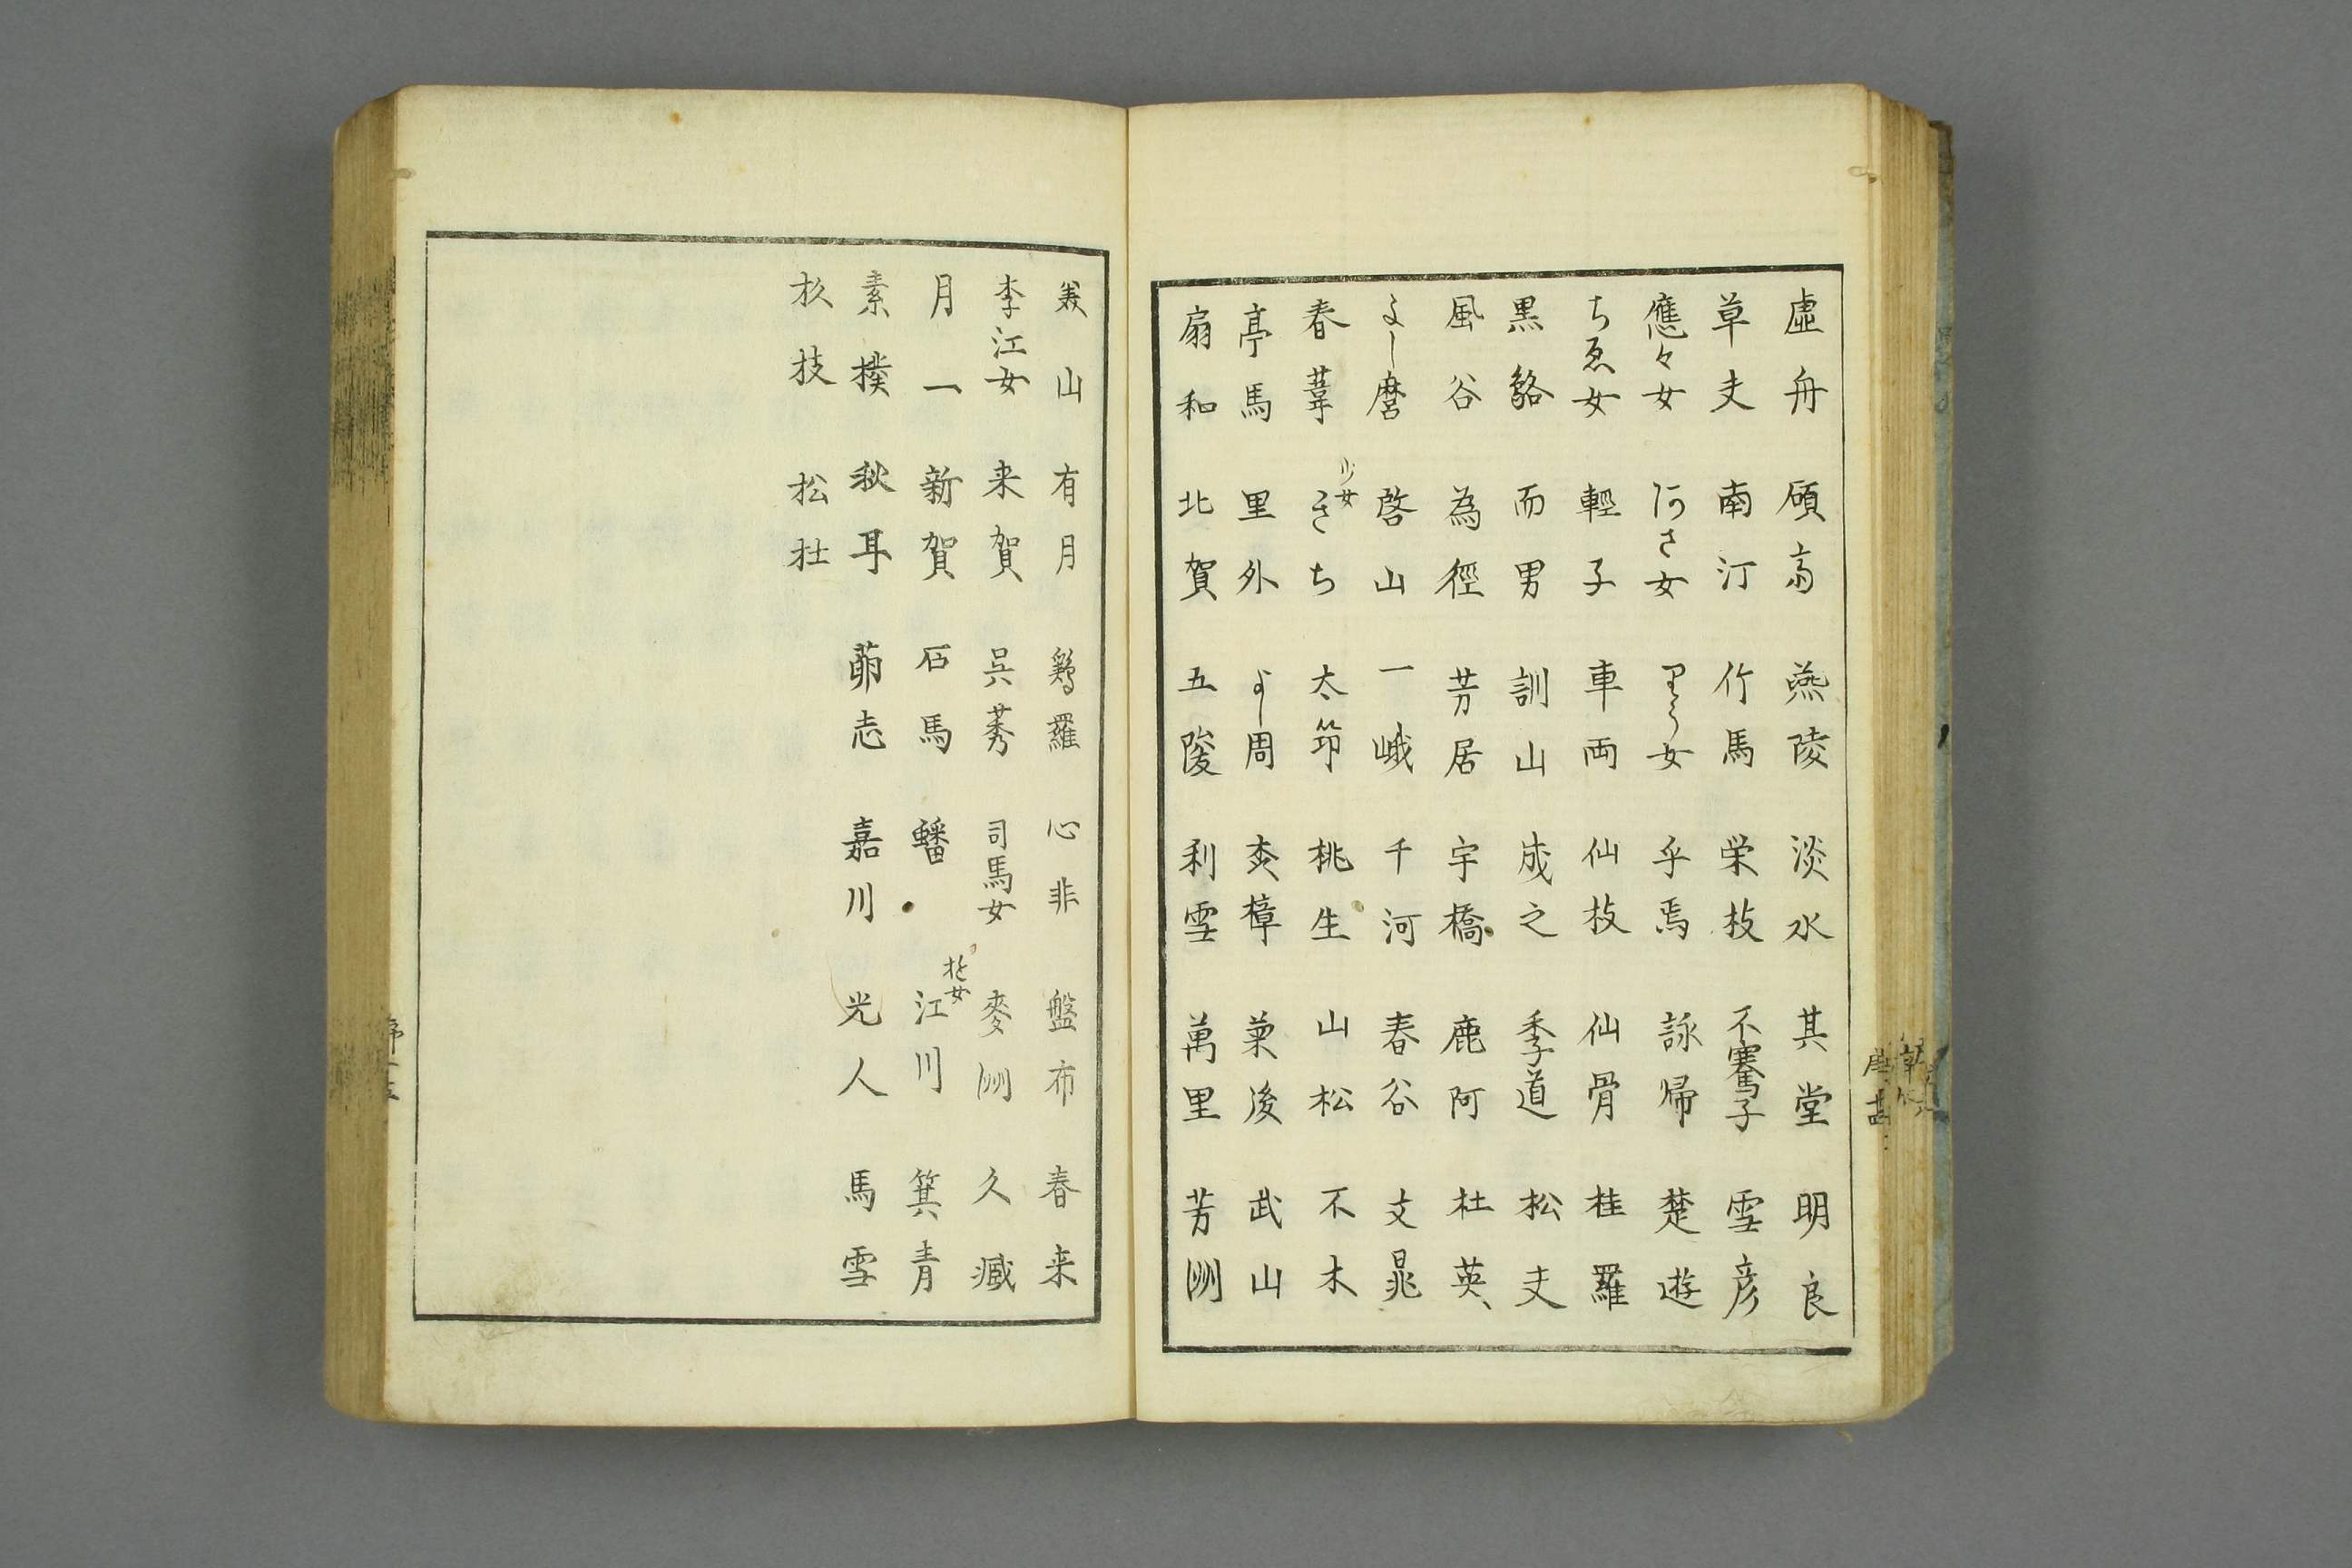 虚舟 頎斎 燕陵 淡水 其堂 明良
草夫 南汀 竹馬 栄枝 不騫子 雪彦
應々女 阿さ女 里う女 乎焉 詠帰 楚遊
ちゑ女 輕子 車両 仙枝 仙骨 桂羅
黒貉 而男 訓山 成之 季道 松夫
風谷 為徑 芳居 宇橋 鹿阿 杜英
よし麿 啓山 一峨 千河 春谷 文晁
春葦 少女さち 太笻 桃生 山松 不木
亭馬 里外 よし周 麦樟 菓後 武山
扇和 北賀 五陵 利雪 萬里 芳洲
美山 有月 鶏羅 心非 盤布 春来
李江女 来賀 呉莠 司馬女 麥洲 久臧
月一 新賀 石馬 蟠 江川 箕青
素撲 秋耳 茆志 嘉川 光人 馬雪
杦枝 松杜